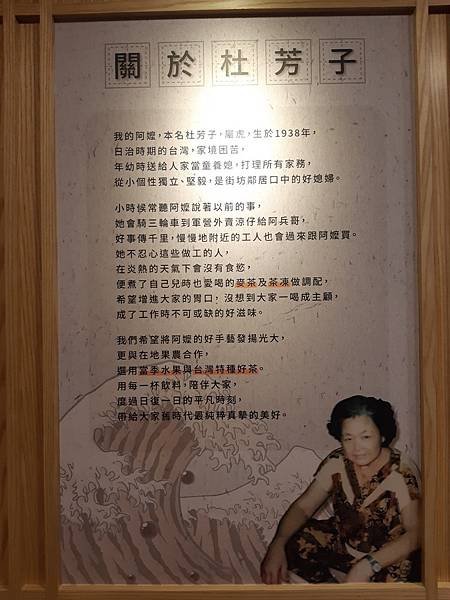 關於杜芳子
我的阿嬤,本名杜芳子,屬虎,生於1938年,
日治時期的台灣,家境困苦,
年幼時送給人家當童養媳,打理所有家務,
從小個性獨立、堅毅,是街坊鄰居口中的好媳婦。
小時候常聽阿嬤說著以前的事,
她會騎三輪車到軍營外賣涼仔給阿兵哥,
好事傳千里,慢慢地附近的工人也會過來跟阿嬤買。
她不忍心這些做工的人,
在炎熱的天氣下會沒有食慾,
便煮了自己兒時也愛喝的麥茶及茶凍做調配,
希望增進大家的胃口,沒想到大家一喝成主顧,
成了工作時不可或缺的好滋味。
我們希望將阿嬤的好手藝發揚光大,
更與在地果農合作,
選用當季水果與台灣特種好茶。
用每一杯飲料,陪伴大家,
度過日復一日的平凡時刻,
帶給大家舊時代最純粹真摯的美好。